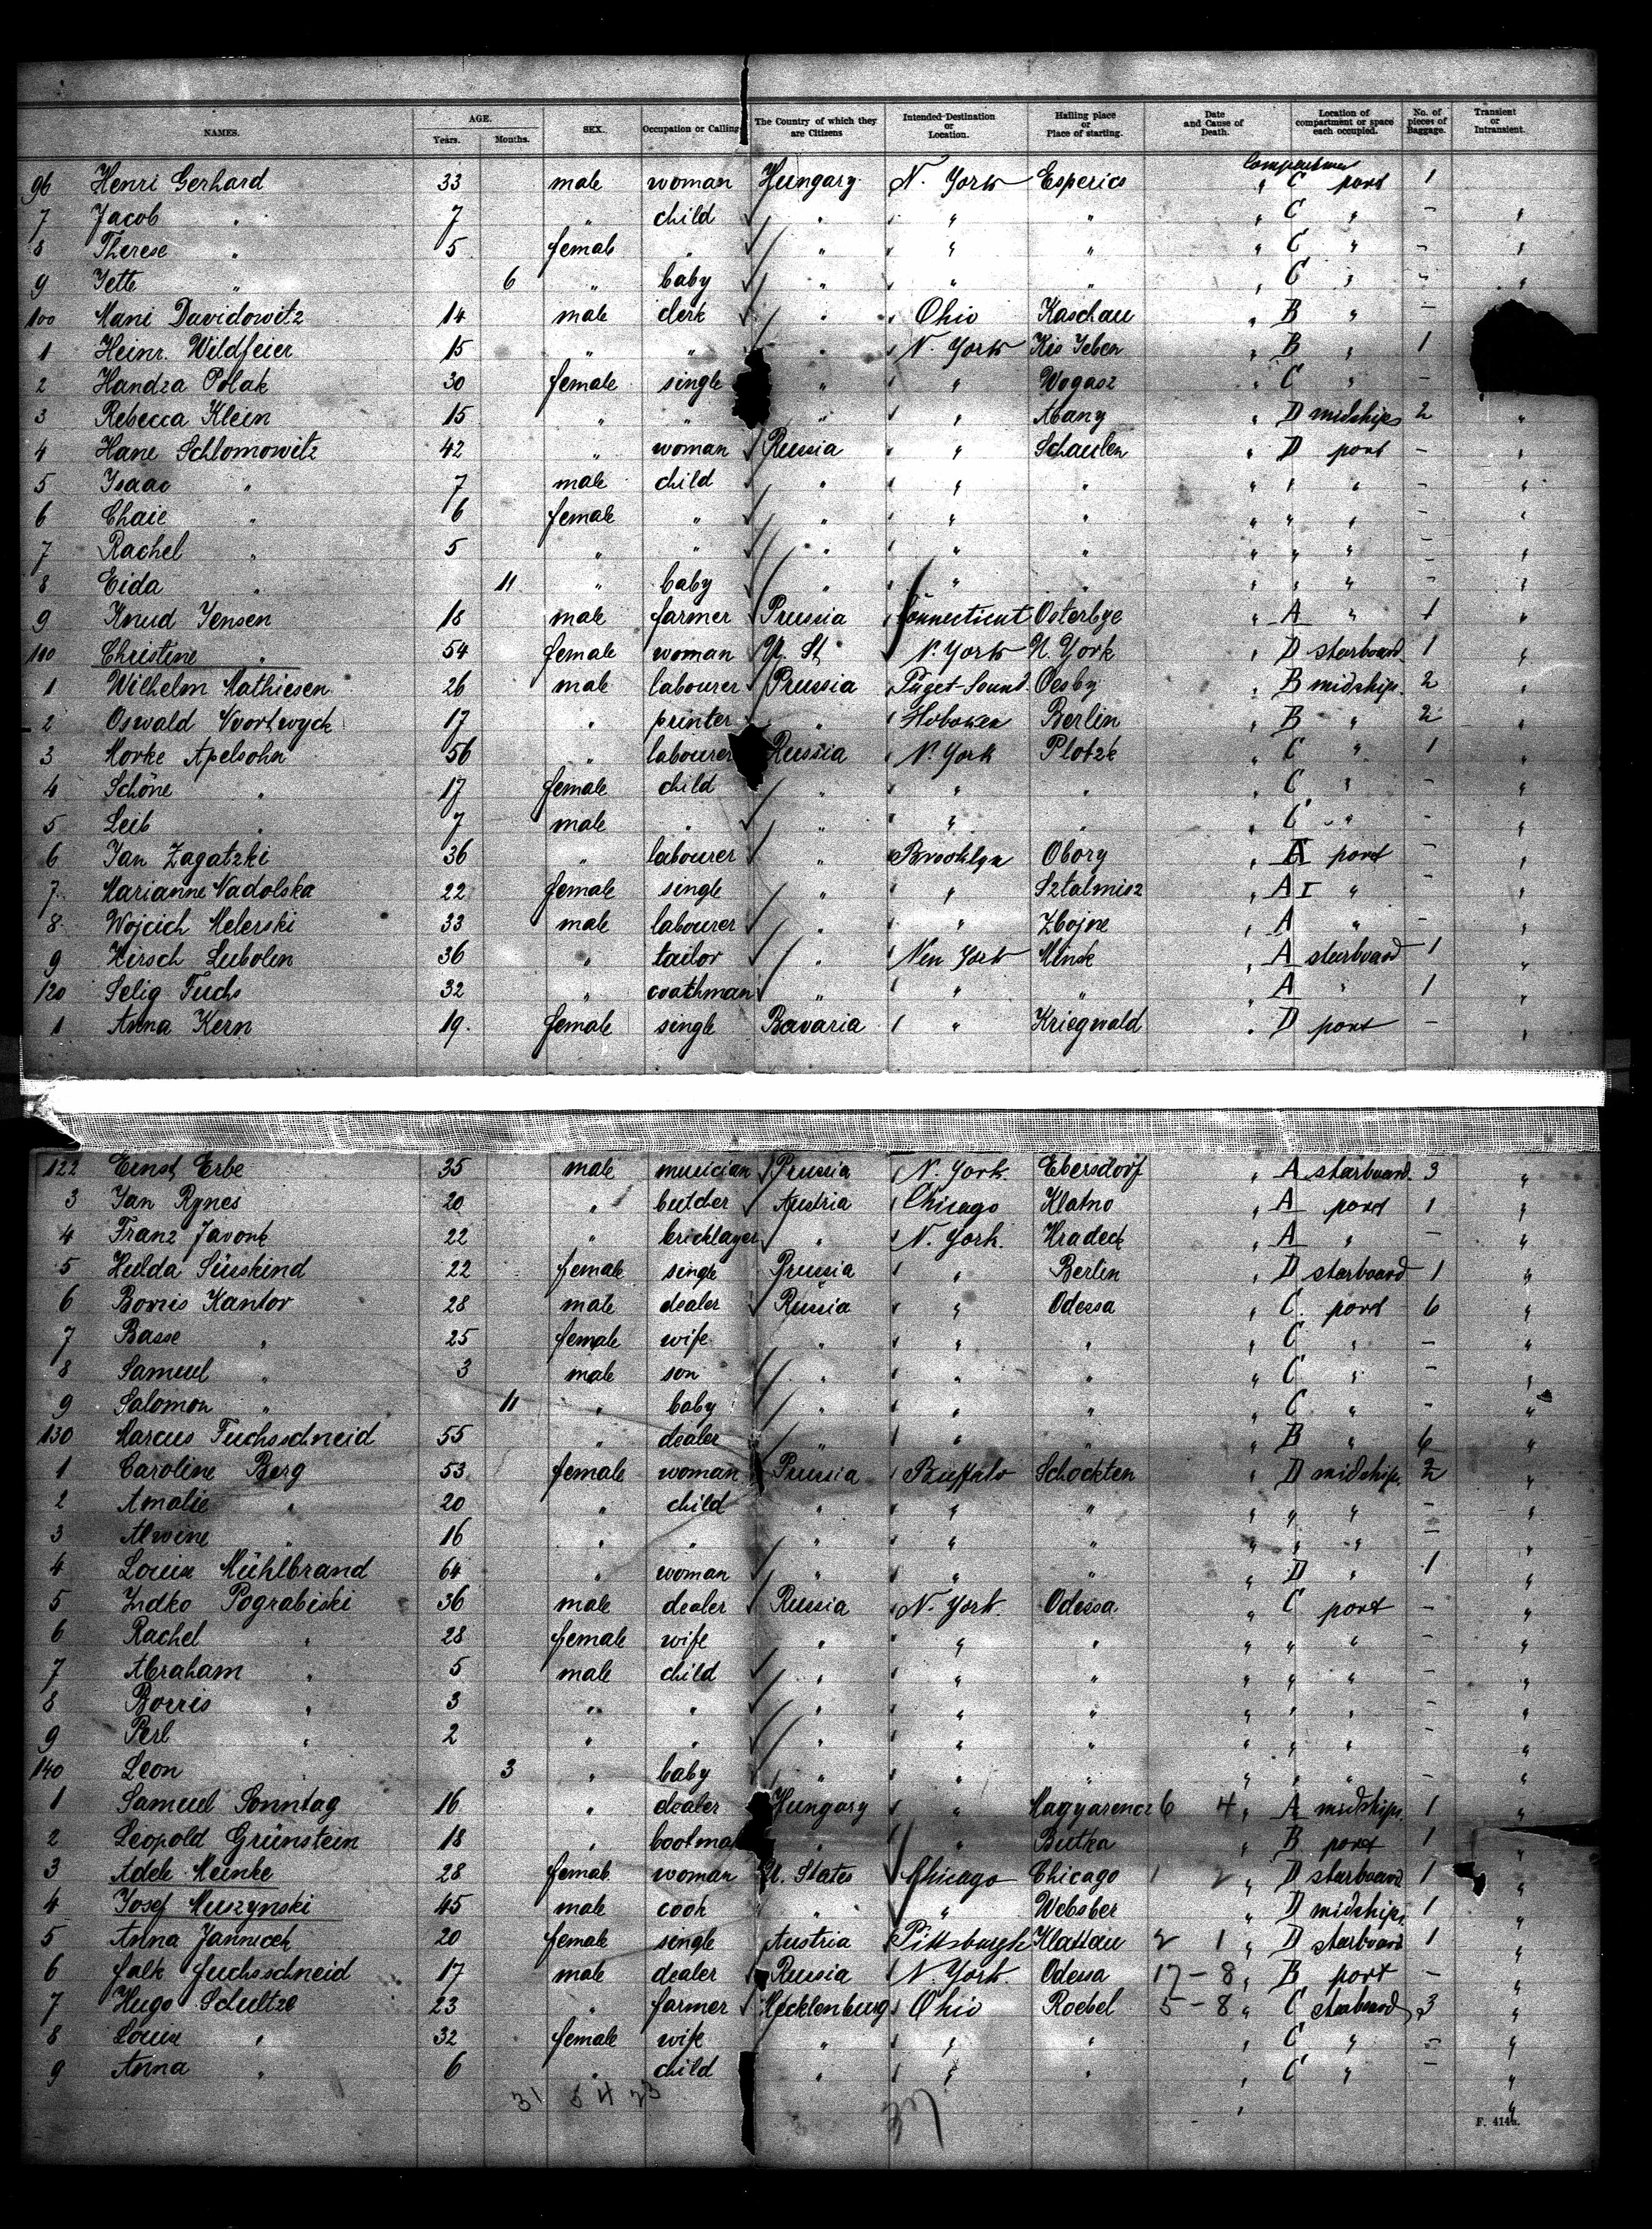 NAMES. AGE. Years. Months. SEX. Occupation or Calling The Country of which they are Citizens Intended Destination or Location. Hailing place or Place of starting. Date and Cause of Death. Location of compartment or space each occupied. No. of pieces of Baggage. Transient or Intransient.
96 Henri Gerhard 33 male woman Hungary N. York Esperies C port 1
7 Jacob " 7 " child " " " " C " - "
8 Therese " 5 female " " " " " C " - "
9 Jette " 6 " baby " " " " C " - "
100 Mani Davidowitz 14 male clerk " Ohio Kaschau " B " -
1 Heinr. Wildfeier 15 " " " N. York Kis Jeben " B " 1
2 Handza Polak 30 female single " " Wogasz " C " -
3 Rebecca Klein 15 " " " " Abany " D midships 2 "
4 Hane Schlomowitz 42 " woman Russia " Schaulen " D port - "
5 Isaac " 7 male child " " " " " " - "
6 Chaie " 6 female " " " " " " " - "
7 Rachel " 5 " " " " " " " " - "
8 Eida " 11 " baby " " " " " " - "
9 Knud Jensen 18 male farmer Prussia Connecticut Osterbye " A " 1 "
110 Christine " 54 female woman U. St. N. York N. York " D starboard 1 "
1 Wilhelm Mathiesen 26 male labourer Prussia Puget Sound Oesby " B midship. 2 "
2 Oswald 17 " printer " Hoboken Berlin " B " 2 "
3 Morke Apelsohn 56 " labourer Russia N. York Plotzk " C " 1 "
4 Schöne " 17 female child " " " " C " - "
5 Leib " 7 male " " " " " C " - "
6 Jan Zagatzki 36 " labourer " Brooklyn Obory " port - "
7 Marianne Nadolska 22 female single " " Sztalmisz " A I " - "
8 Wojcich Melerski 33 male labourer " " Zbojne " A " - "
9 Hirsch Leibolen 36 " tailor " New York Minsk " A starboard 1 "
120 Selig Fuchs 32 " coathman " " " " A " 1 "
1 Anna Kern 19. female single Bavaria " Kriegwald " D port - "
122 Ernst Erbe 35 male musician Prussia N. York. Ebersdorf " A starboard. 3 "
3 Jan Rynes 20 " butcher Austria Chicago Klatno " A port 1 "
4 Franz 22 " bricklayer " N. York. Hradeck " A " - "
5 Hulda Süsskind 22 female single Prussia " Berlin " D starboard 1 "
6 Borris Kantor 28 male dealer Russia " Odessa " C. port 6 "
7 Basse " 25 female wife " " " " C " - "
8 Samuel " 3 male son " " " " C " - "
9 Salomon " 11 " baby " " " " C " - "
130 Marcus Fuchsschneid 55 " dealer " " " " B " 6 "
1 Caroline Berg 53 female woman Prussia Buffalo Schockten " D midship. 2 "
2 Amalie " 20 " child " " " " " " - "
3 Alwine " 16 " " " " " " " " - "
4 Louise Mühlbrand 64 " woman " " " " D " 1 "
5 Indko Pograbiski 36 male dealer Russia N. York. Odessa " C port - "
6 Rachel " 28 female wife " " " " " " - "
7 Abraham " 5 male child " " " " " " - "
8 Borris " 3 " " " " " " " " - "
9 Perl " 2 " " " " " " " " - "
140 Leon " 3 " baby " " " " " " - "
1 Samuel Sonntag 16 " dealer Hungary " Magyarencz 6 4 " A midships 1 "
2 Leopold Grünstein 18 " bootma " " Butka " B port 1 "
3 Adele Meinke 28 female woman U. States Chicago Chicago 1 2 " D starboard 1 "
4 Josef Muszynski 45 male cook " " Webster " D midships 1 "
5 Anna Jannicek 20 female single Austria Pittsburgh Klattau 2 1 " D starboard 1 "
6 Falk Fuchsschneid 17 male dealer Russia N. York. Odessa 17 - 8 " B port - "
7 Hugo Schultze 23 " farmer Mecklenburg Ohio Roebel 5 - 8 " C starboard 3 "
8 Louise " 32 female wife " " " " C " - "
9 Anna " 6 " child " " " " C " - "
31 5 4 23 37
F. 414a.